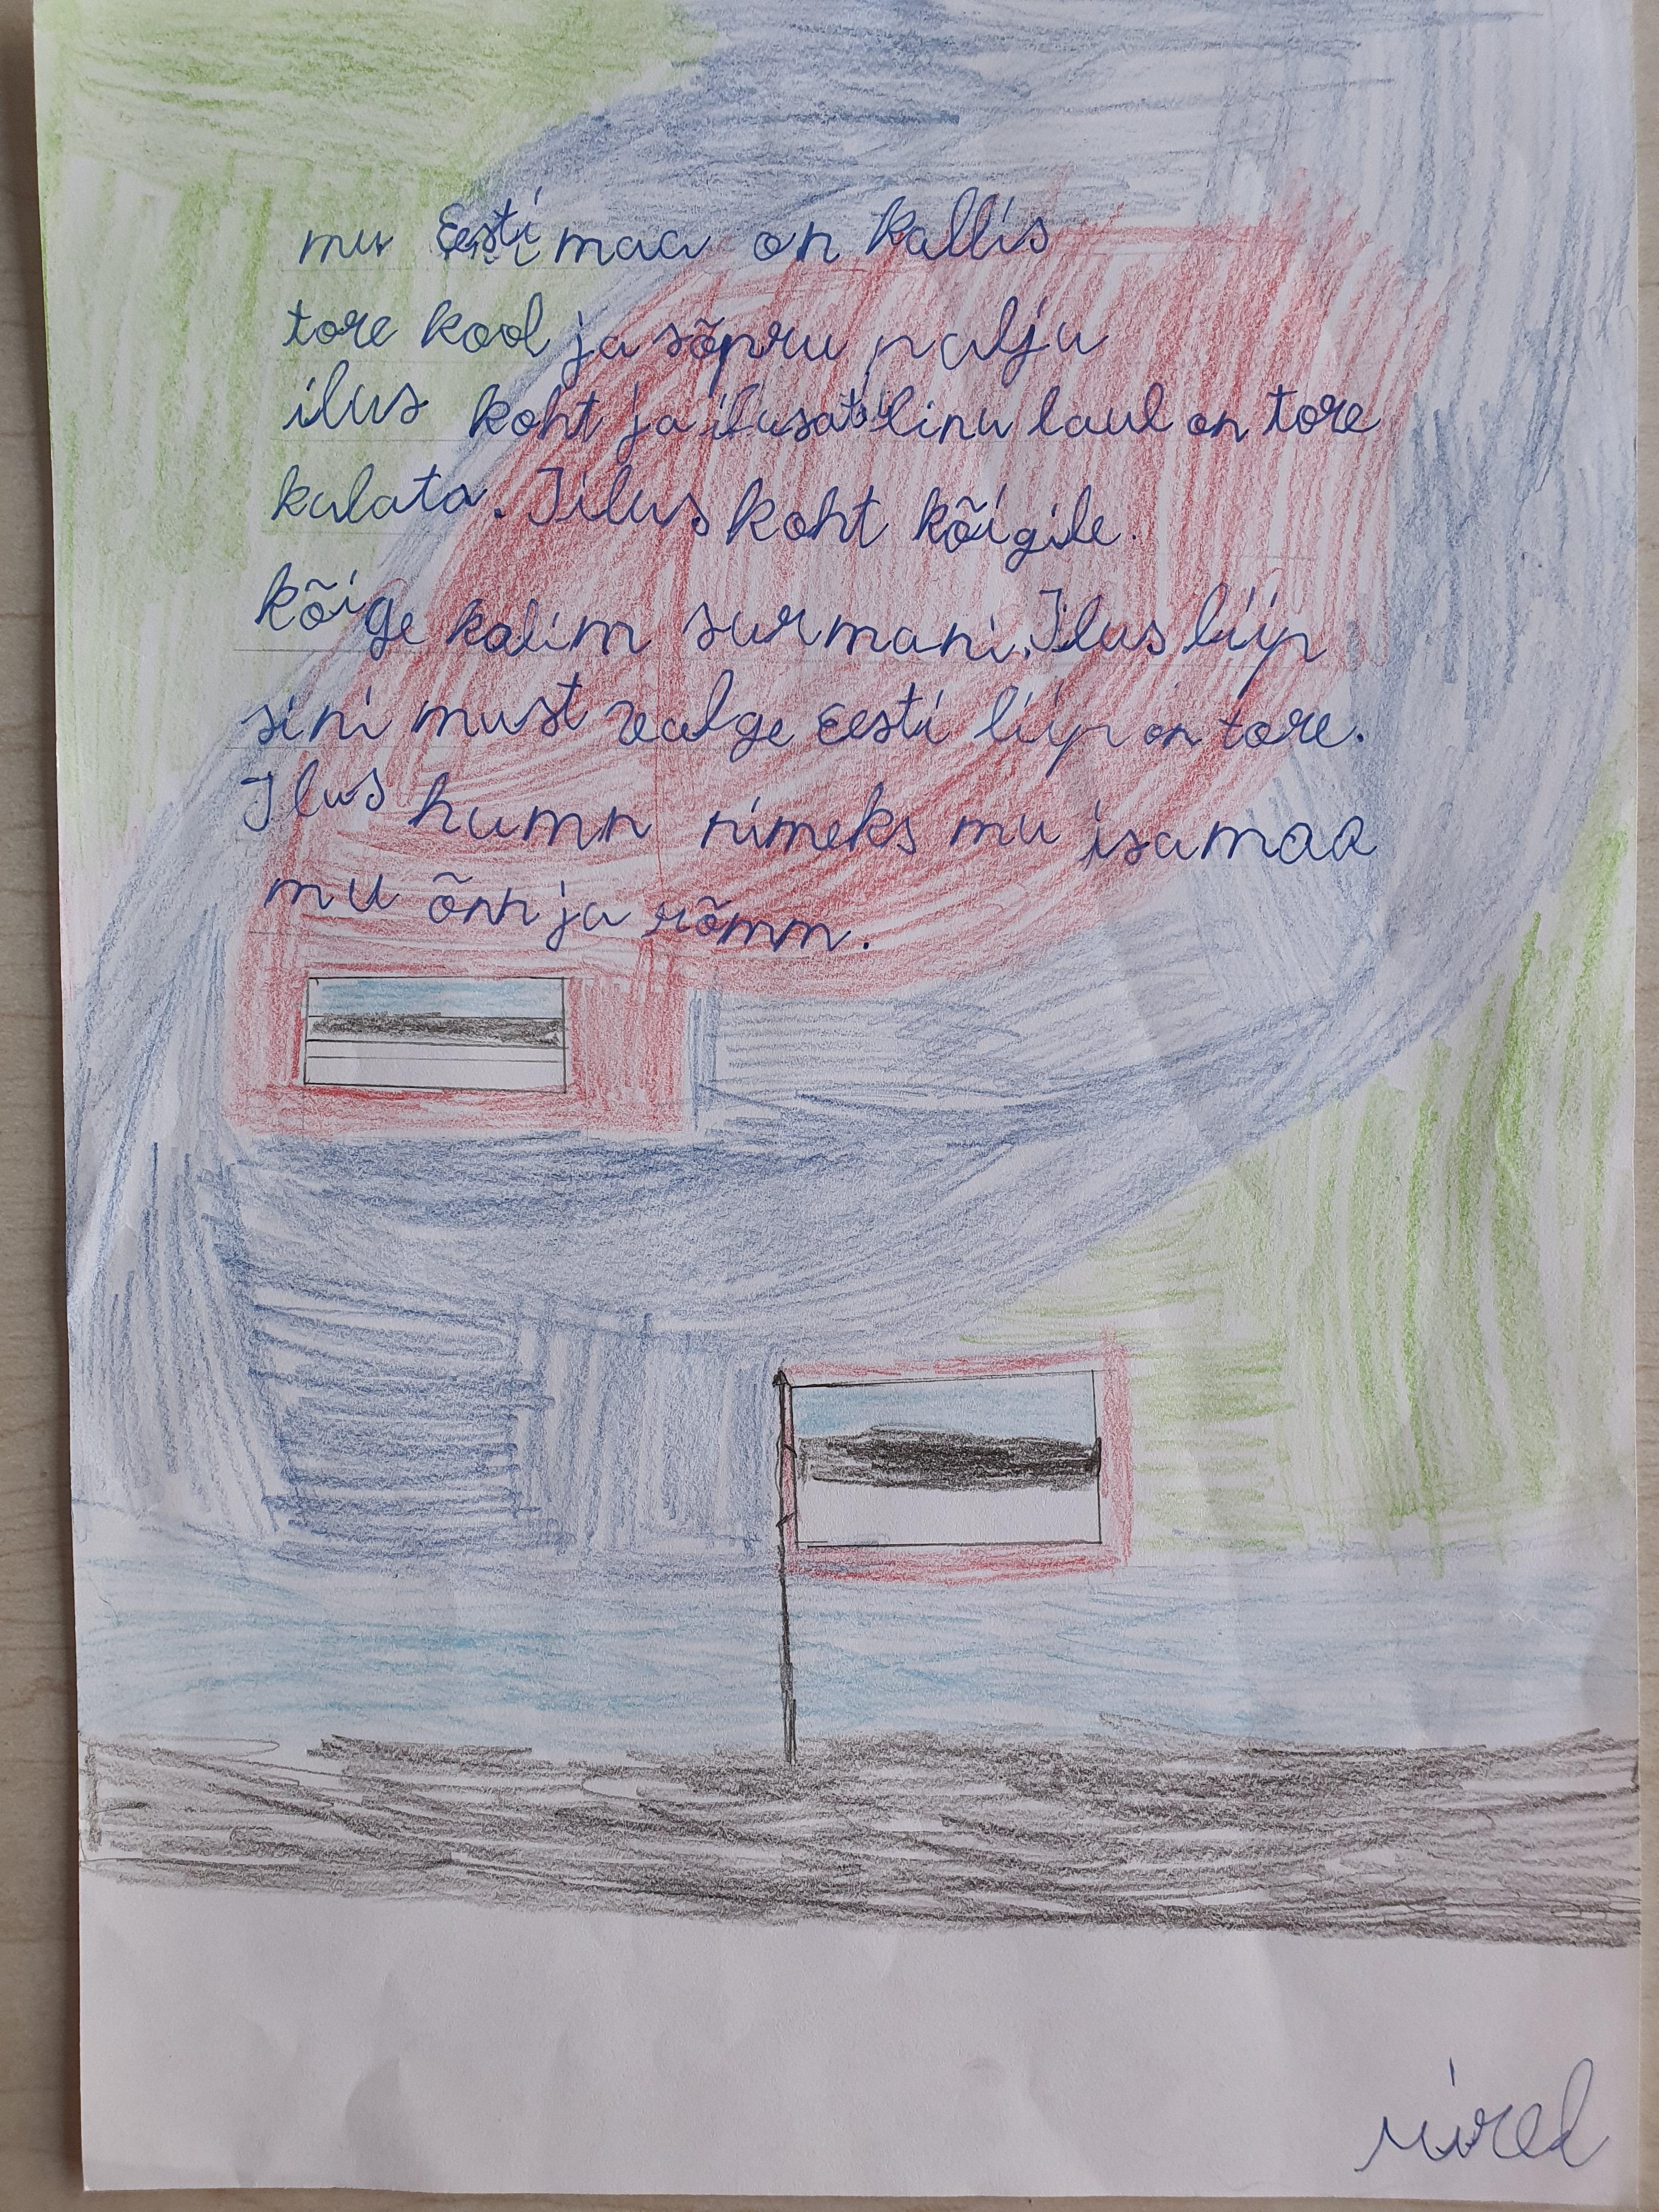 mu Eesti maa on kallis
tore kool ja sõpru palju
ilus koht ja ilusat linu laul on tore
kulata. Iilus koht kõigile.
kõige kalim surmani. Ilus liip
sini must valge Eesti liip on tore.
Ilus humn nimeks mu isamaa
mu õnn ja rõmm.